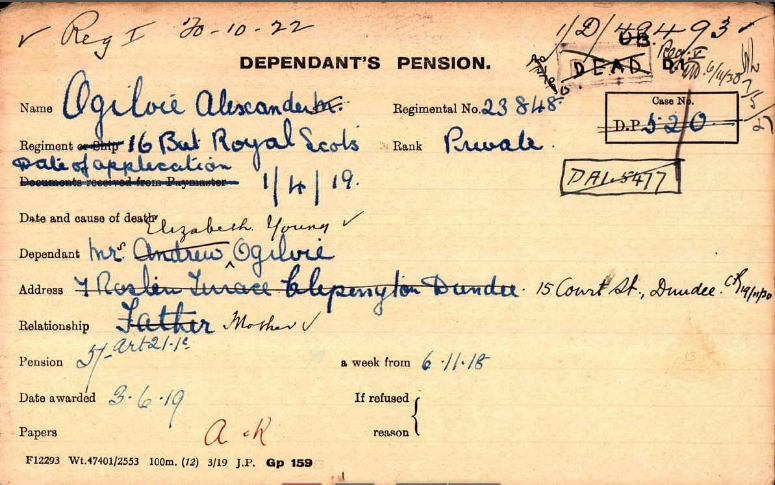 ✓ Reg I 20-10-22
1/D/49493 ✓
DEPENDANT'S PENSION.
DEAD
Name Ogilvie Alexander M. Regimental No. 23848
Case No.
D.P. 520
Regiment or Ship 16 Bat Royal Scots Rank Private.
Date of application
Documents received from Paymaster 1/4/19.
Date and cause of death
Elizabeth Young ✓
Dependant Mrs Andrew Ogilvie
Address 7 Roslin Terrace Clepington Dundee. 15 Court St., Dundee.
Relationship Father Mother ✓
Pension 5/- Art 21.1c a week from 6.11.18
Date awarded 3.6.19 If refused
Papers reason
F12293 Wt.47401/2553 100m. (12) 3/19 J.P. Gp 159